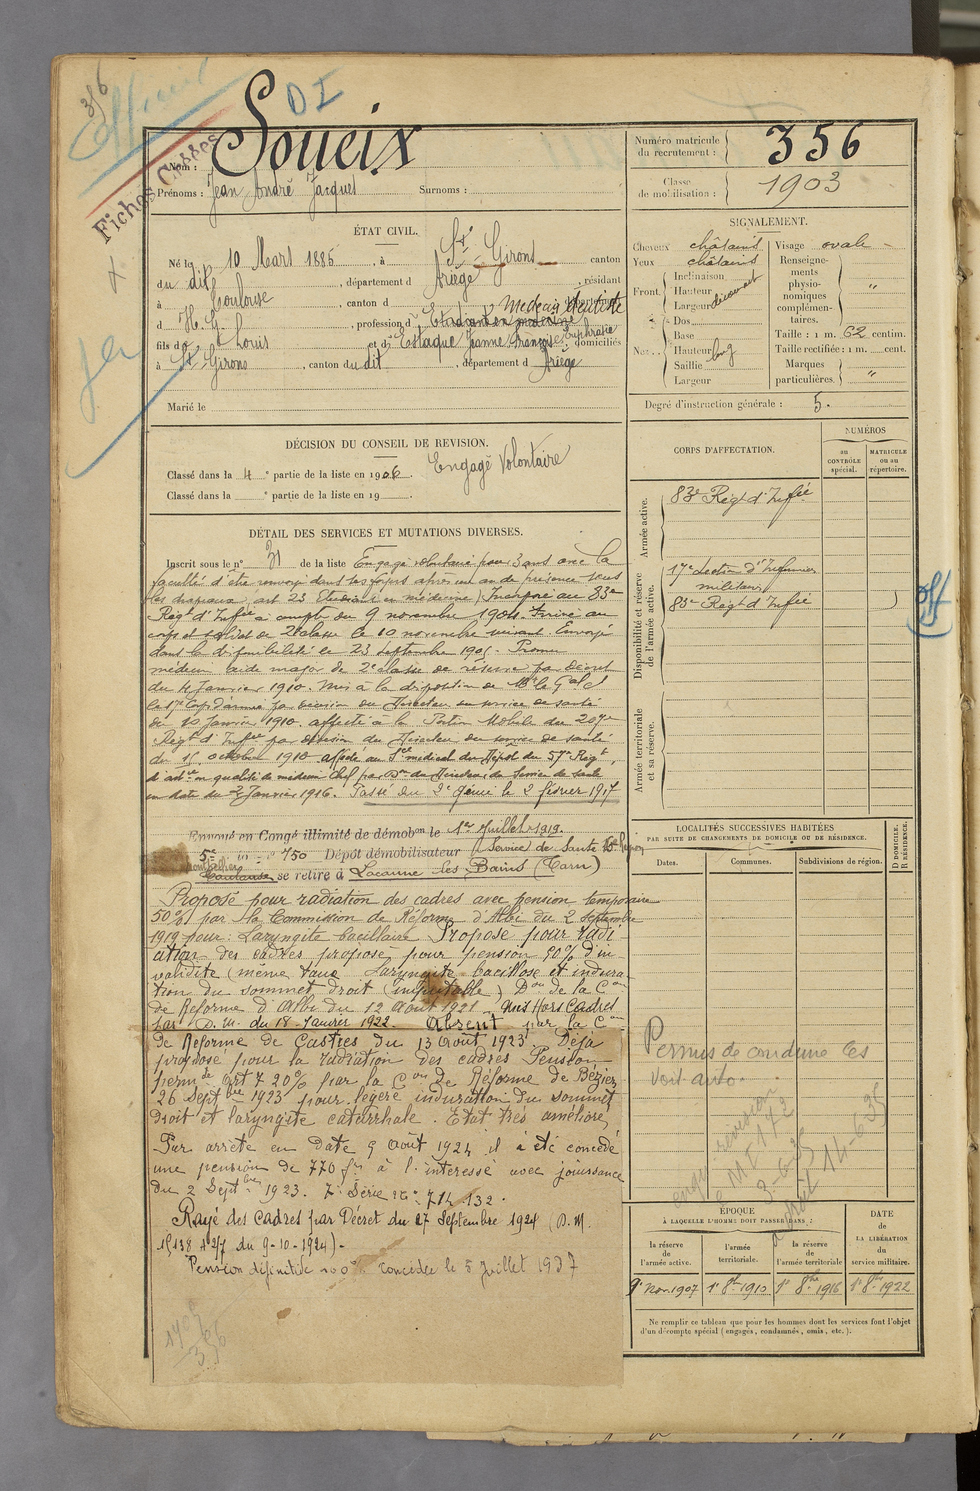 356
Officier
D I
Soueix
Fiches Classes
Nom :
Prénoms : Jean André Jacques Surnoms :
ÉTAT CIVIL.
Né le 10 Mars 1885, à St Girons canton
du dit, département d Ariège, résidant
à Toulouse, canton d
d Hte G., profession d' Etudiant en médecine Médecin dentiste
fils de Louis et de Estaque Jeanne Françoise Euphrasie domiciliés
à St Girons, canton du dit, département d Ariège
Marié le
DÉCISION DU CONSEIL DE REVISION.
Classé dans la 4e partie de la liste en 1906. Engagé Volontaire
Classé dans la e partie de la liste en 19
DÉTAIL DES SERVICES ET MUTATIONS DIVERSES.
Inscrit sous le n° 31 de la liste Engagé volontaire pour 3 ans avec la
faculté d'être renvoyé dans ses foyers après un an de présence sous
les drapeaux, art 23 Etudiant en médecine) Incorporé au 83e
Régt d'Infie à compter du 9 novembre 1904. Arrivé au
corps et soldat de 2e classe le 10 novembre suivant. Envoyé
dans la disponibilité le 23 septembre 1905. Promu
médecin aide major de 2e classe de réserve par décret
du 4 Janvier 1910. Mis à la disposition de Mr le Gal Ct
le 17e Corps d'armée par décision du Directeur du service de santé
du 10 Janvier 1910. affecté à la Portion Mobile du 207e
Régt d'Infie par décision du Directeur du service de santé
du 15 octobre 1910 affecté au Sce médical du Dépôt du 57e Régt
d'artie en qualité de médecin Chef par Don du Directeur du Service de Santé
en date du 2 Janvier 1916. Passé au 2e Génie le 2 février 1917
Envoyé en Congé illimité de démobon le 1er Juillet 1919.
5e 750 Dépôt démobilisateur Service de Santé
Montpellier
Toulouse se retire à Lacaune les Bains (Tarn)
Proposé pour radiation des cadres avec pension temporaire
50% par la Commission de Réforme d'Albi du 2 septembre
1919 pour : Laryngite bacillaire Proposé pour radi-
ation des cadres proposé pour pension 50% d'in-
validité (même taux Laryngite bacillose et indura-
tion du sommet droit (imputable) Don de la Con
de Réforme d'Albi du 12 Août 1921 Mis Hors Cadres
par D.M. du 18 Janvier 1922. Absent par la Con
de Réforme de Castres du 13 Août 1923 Déjà
proposé pour la radiation des cadres Pension
perm te art 7 20% par la Con de Réforme de Béziers
26 Septbre 1923 pour légère induration du sommet
droit et laryngite catarrhale. Etat très amélioré
Par arrêté en date 9 Août 1924 il a été concédé
une pension de 770 frs à l'intéressé avec jouissance
du 2 Septbre 1923. 7e Série n° 714.132.
Rayé des cadres par Décret du 27 Septembre 1924 (D.M.
15138 A 2/7 du 9-10-1924).-
Pension définitive 100% concédée le 5 Juillet 1937
356
Numéro matricule du recrutement : 356
Classe de mobilisation : 1903
SIGNALEMENT.
Cheveux châtains
Yeux châtains
Front. Inclinaison
Hauteur
Largeur découvert
Nez. Dos
Base
Hauteur long
Saillie
Largeur
Visage ovale
Renseignements physionomiques complémentaires. "
Taille : 1 m. 62 centim.
Taille rectifiée : 1 m. cent.
Marques particulières. "
Degré d'instruction générale : 5.
CORPS D'AFFECTATION.
NUMÉROS
au CONTRÔLE spécial.
MATRICULE ou au répertoire.
Armée active.
83e Régt d'Infie
Disponibilité et réserve de l'armée active.
17e Section d'Infirmiers
militaires
83e Régt d'Infie
Off
Armée territoriale et sa réserve.
LOCALITÉS SUCCESSIVES HABITÉES
PAR SUITE DE CHANGEMENTS DE DOMICILE OU DE RÉSIDENCE.
Dates.
Communes.
Subdivisions de région.
D DOMICILE. R RÉSIDENCE.
Permis de conduire les
voit auto.
MI 172
3-6-35
14-6-35
ÉPOQUE
À LAQUELLE L'HOMME DOIT PASSER DANS :
la réserve de l'armée active.
l'armée territoriale.
la réserve de l'armée territoriale
DATE de LA LIBÉRATION du service militaire.
9 Nov. 1907
1er 8bre 1910
1er 8bre 1916
1er 8bre 1922
Ne remplir ce tableau que pour les hommes dont les services font l'objet
d'un décompte spécial (engagés, condamnés, omis, etc.).